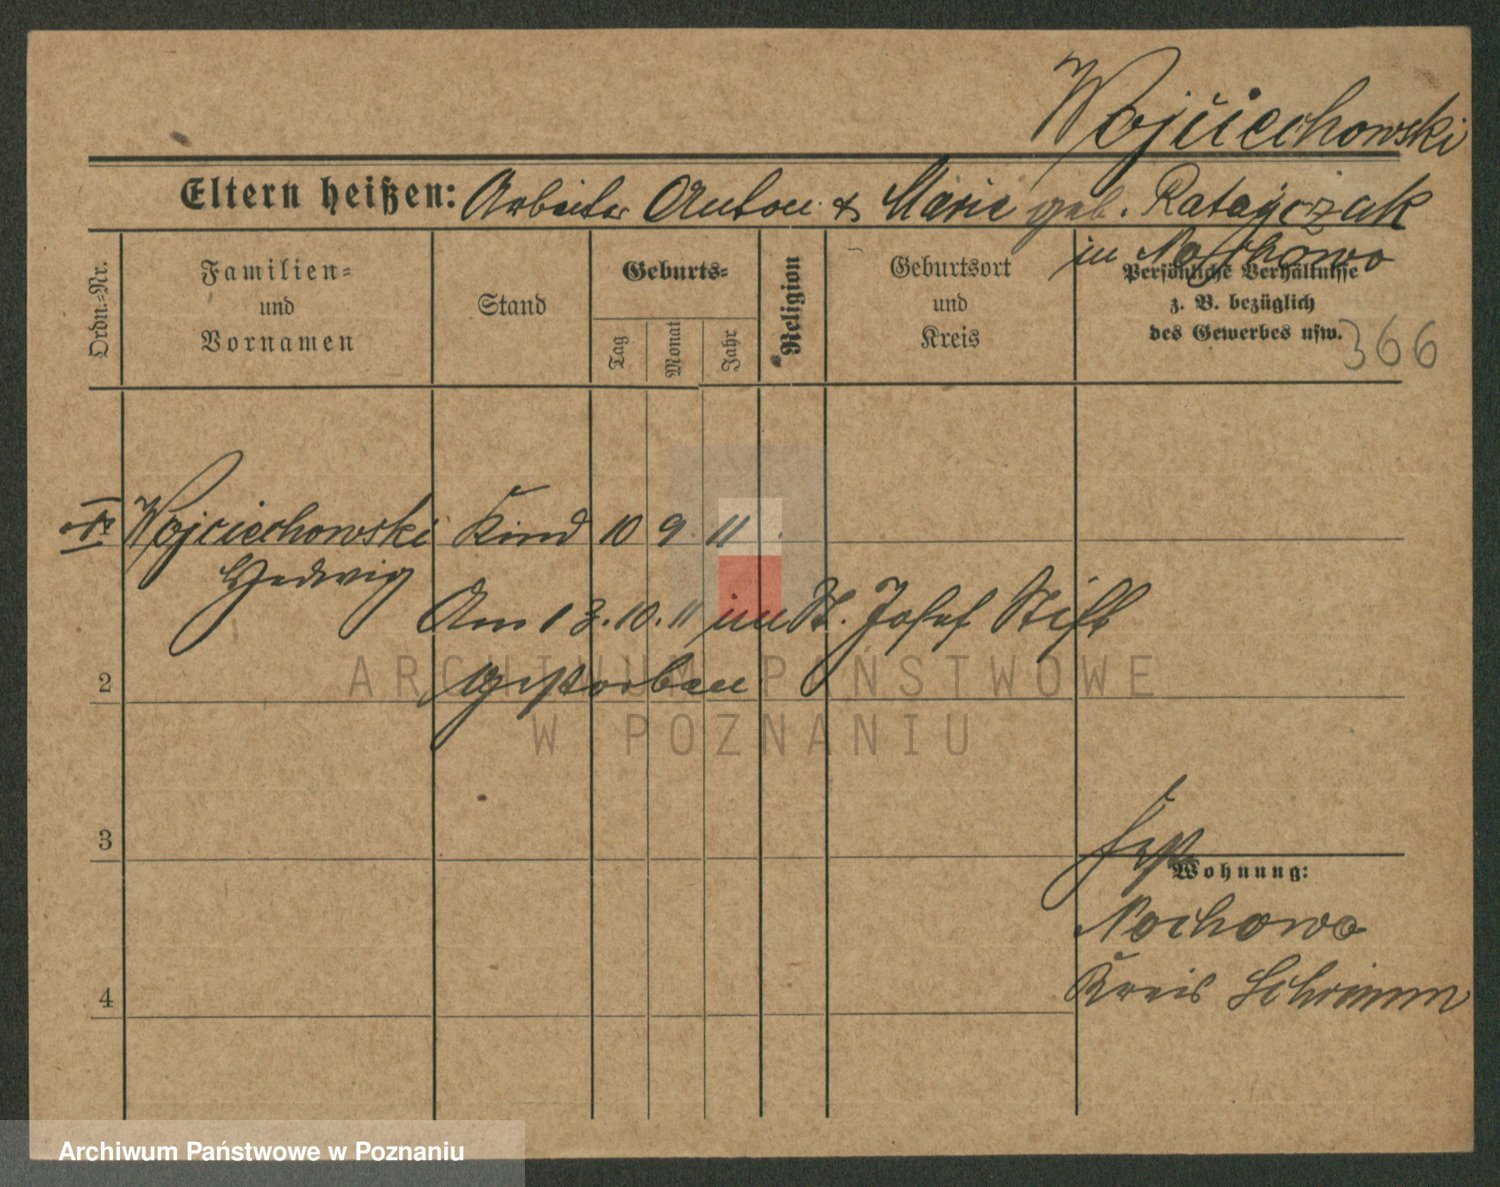 Wojciechowski
Eltern heißen: Arbeiter Anton & Marie geb. Ratajczak
in Nochowo
Ordn.-Nr.
Familien- und Vornamen
Stand
Geburts-
Tag
Monat
Jahr
Religion
Geburtsort und Kreis
Persönliche Verhältnisse
z. B. bezüglich
des Gewerbes usw.
366
Wojciechowski Kind 10 9. 11.
Hedwig
Am 13.10.11 im St. Josef Stift
gestorben
2
3
Wohnung:
Nochowo
4
Kreis Schrimm
ARCHIWUM PAŃSTWOWE
W POZNANIU
Archiwum Państwowe w Poznaniu